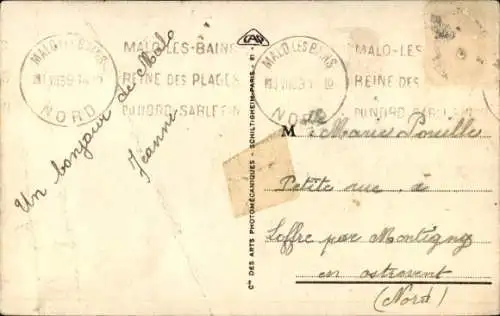 MALO LES BAINS
NORD
MALO-LES-BAINS
REINE DES PLAGES
DU NORD-SABLE FIN
MALO LES BAINS
NORD
MALO-LES
REINE DES
DU NORD-SABLE
Un bonjour de Malo
Jeanne
CAP
Cie DES ARTS PHOTOMÉCANIQUES - SCHILTIGHEIM-PARIS
Mlle Marie Pouille
Petite rue à
Loffre par Montigny
en ostrevent
(Nord)